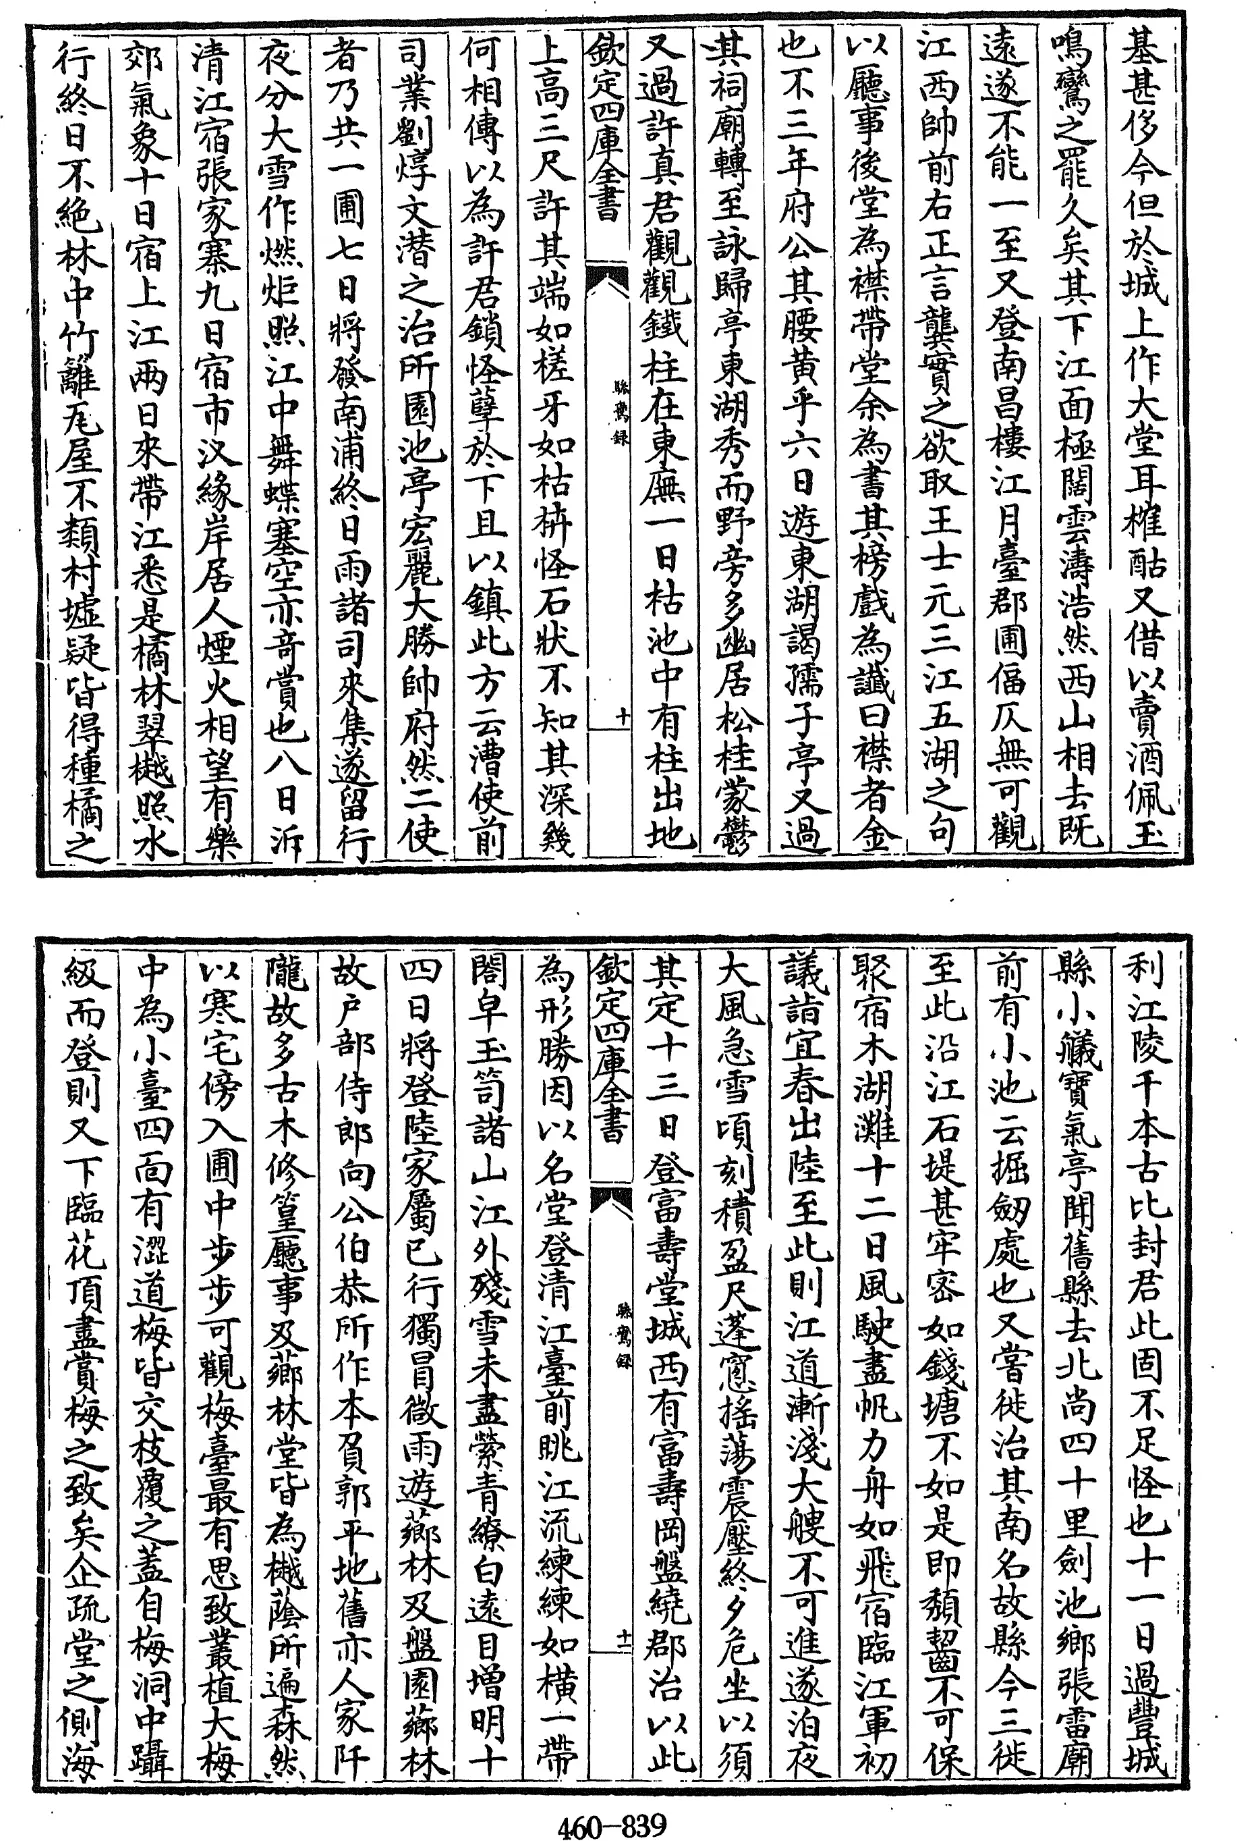 基甚侈今但於城上作大堂耳榷酤又借以賣酒佩玉
鳴鸞之罷久矣其下江面極闊雲濤浩然西山相去既
遠遂不能一至又登南昌樓江月臺郡圃偪仄無可觀
江西帥前右正言龔實之欲取王士元三江五湖之句
以廳事後堂為襟帶堂余為書其榜戲為讖曰襟者金
也不三年府公其腰黃乎六日遊東湖謁孺子亭又過
其祠廟轉至詠歸亭東湖秀而野旁多幽居松桂蒙鬱
又過許真君觀觀鐵柱在東廡一日枯池中有柱出地
欽定四庫全書
驂鸞録
十
上高三尺許其端如槎牙如枯枿怪石狀不知其深幾
何相傳以為許君鎖怪孽於下且以鎮此方云漕使前
司業劉焞文潛之治所園池亭宏麗大勝帥府然二使
者乃共一圃七日將發南浦終日雨諸司來集遂留行
夜分大雪作燃炬照江中舞蝶塞空亦竒賞也八日泝
清江宿張家寨九日宿市汊緣岸居人煙火相望有樂
郊氣象十日宿上江兩日來帶江悉是橘林翠樾照水
行終日不絶林中竹籬瓦屋不類村墟疑皆得種橘之
利江陵千本古比封君此固不足怪也十一日過豐城
縣小艤寶氣亭聞舊縣去北尚四十里劍池鄉張雷廟
前有小池云掘劒處也又嘗徙治其南名故縣今三徙
至此沿江石堤甚牢密如錢塘不如是即頹齧不可保
聚宿木湖灘十二日風駛盡帆力舟如飛宿臨江軍初
議詣宜春出陸至此則江道漸淺大艘不可進遂泊夜
大風急雪頃刻積盈尺蓬窻摇蕩震壓終夕危坐以須
其定十三日登富壽堂城西有富壽岡盤繞郡治以此
欽定四庫全書
驂鸞録
十一
為形勝因以名堂登清江臺前眺江流練練如横一帶
閤皁玉笥諸山江外殘雪未盡縈青繚白遠目增明十
四日將登陸家屬已行獨冒微雨遊薌林及盤園薌林
故户部侍郎向公伯恭所作本負郭平地舊亦人家阡
隴故多古木修篁廳事及薌林堂皆為樾蔭所遍森然
以寒宅傍入圃中步步可觀梅臺最有思致叢植大梅
中為小臺四面有澀道梅皆交枝覆之蓋自梅洞中躡
級而登則又下臨花頂盡賞梅之致矣企疏堂之側海
460-839